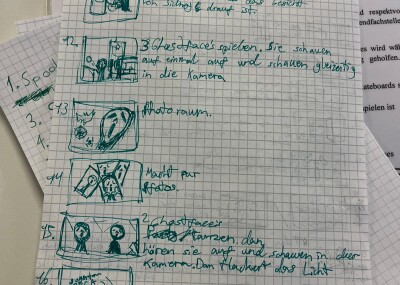 von Sidney drauf ist.
12. 3 Ghostface's spielen. Sie schauen
auf einmal auf und schauen gleizeitig
in die Kamera
13 Photo raum.
14 Macht par
Fotos.
15. 2 Ghostface's
tanzen. dan
hören sie auf und schauen in der
Kamera. Dan flackert das Licht
16
1. Spoo
3.
4.
respektvo
endfachstelle
es wird wäh
geholfen.
ateboards s
pielen ist